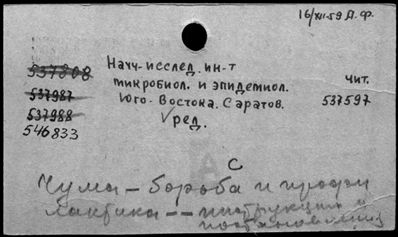 16/XII-59 А.Ф.
537808
Научн-исслед. ин-т
микробиол. и эпидемиол.
чит.
537987
Юго-Востока. Саратов.
537597
537988
ред.
546833
С
Чума – борьба и профи
лактика -- инструкции и
постановления